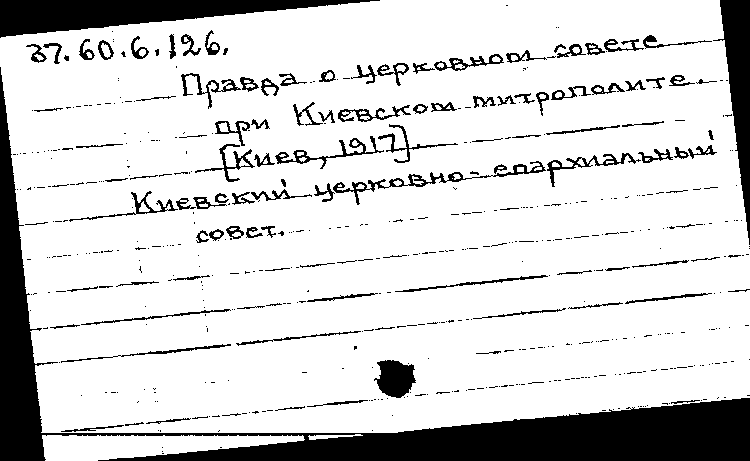 37.60.6.126.
Правда о церковном совете
при Киевском митрополите.
[Киев, 1917].
Киевский церковно-епархиальный
совет.